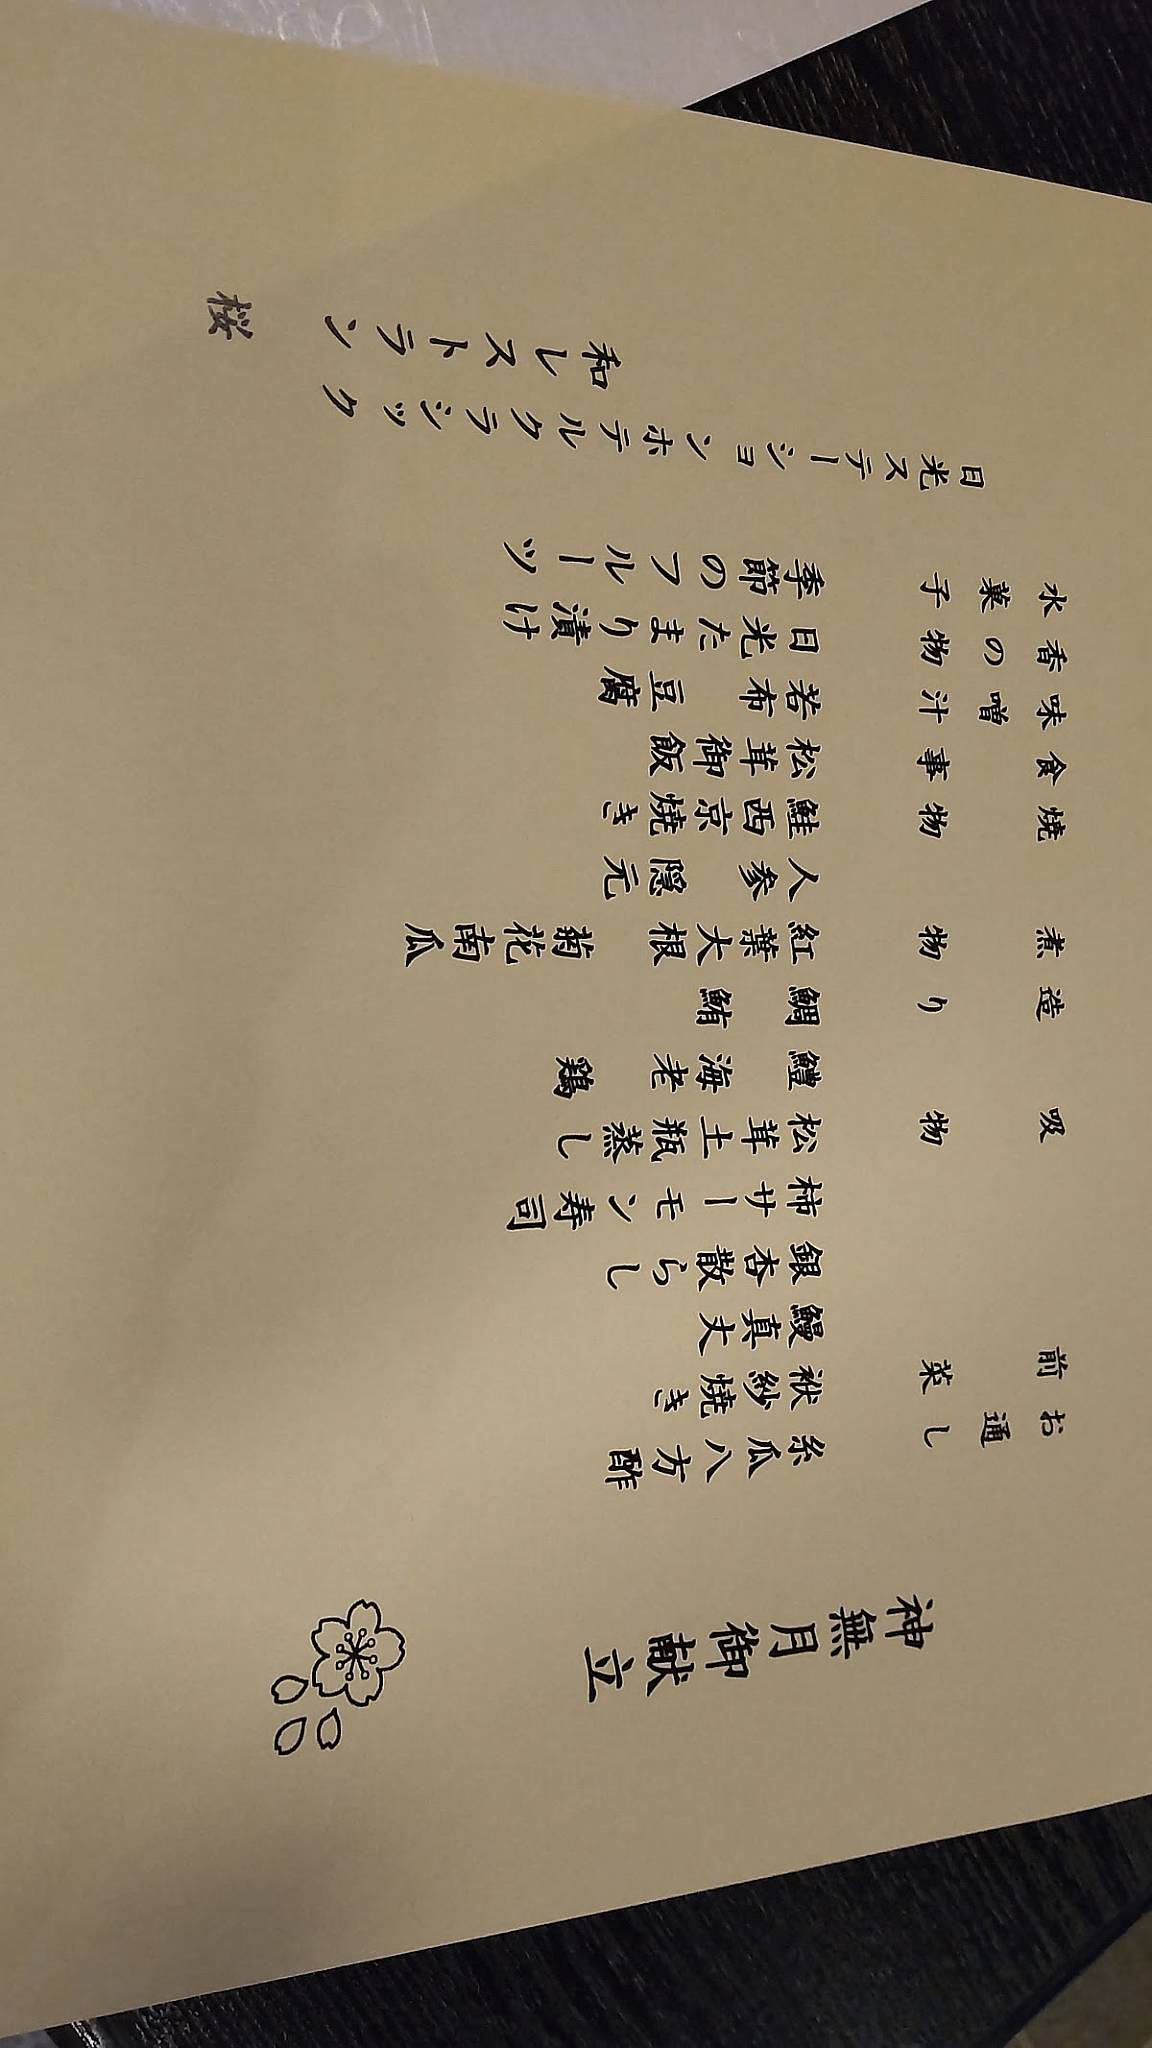 神無月御献立
お通し 糸瓜八方酢
前菜 袱紗焼き
鰻真丈
銀杏散らし
柿サーモン寿司
吸物 松茸土瓶蒸し
鱧 海老 鶏
造り 鯛 鮪
煮物 紅葉大根 菊花南瓜
人参 隠元
焼物 鮭西京焼き
食事 松茸御飯
味噌汁 若布 豆腐
香の物 日光たまり漬け
水菓子 季節のフルーツ
日光ステーションホテルクラシック
和レストラン 桜